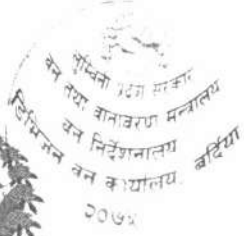 लुम्बिनी प्रदेश सरकार
वन तथा वातावरण मन्त्रालय
वन निर्देशनालय
डिभिजन वन कार्यालय, बर्दिया